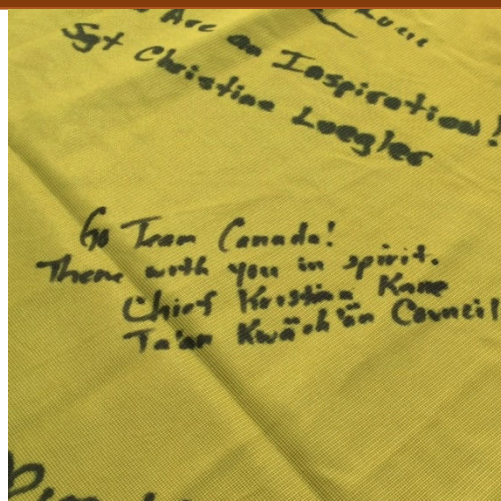 Are an Inspiration!
Sgt Christine Loegler
Go Team Canada!
There with you in spirit.
Chief Kristina Kane
Ta'an Kwäch'än Council